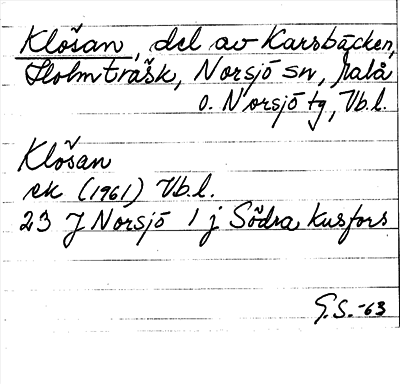 Klösan, del av Karsbäcken,
Holmträsk, Norsjö sn, Malå
o. Norsjö tg, Vb.l.
Klösan
ek (1961) Vb.l.
23 J Norsjö 1 j Södra Kusfors
G.S.-63